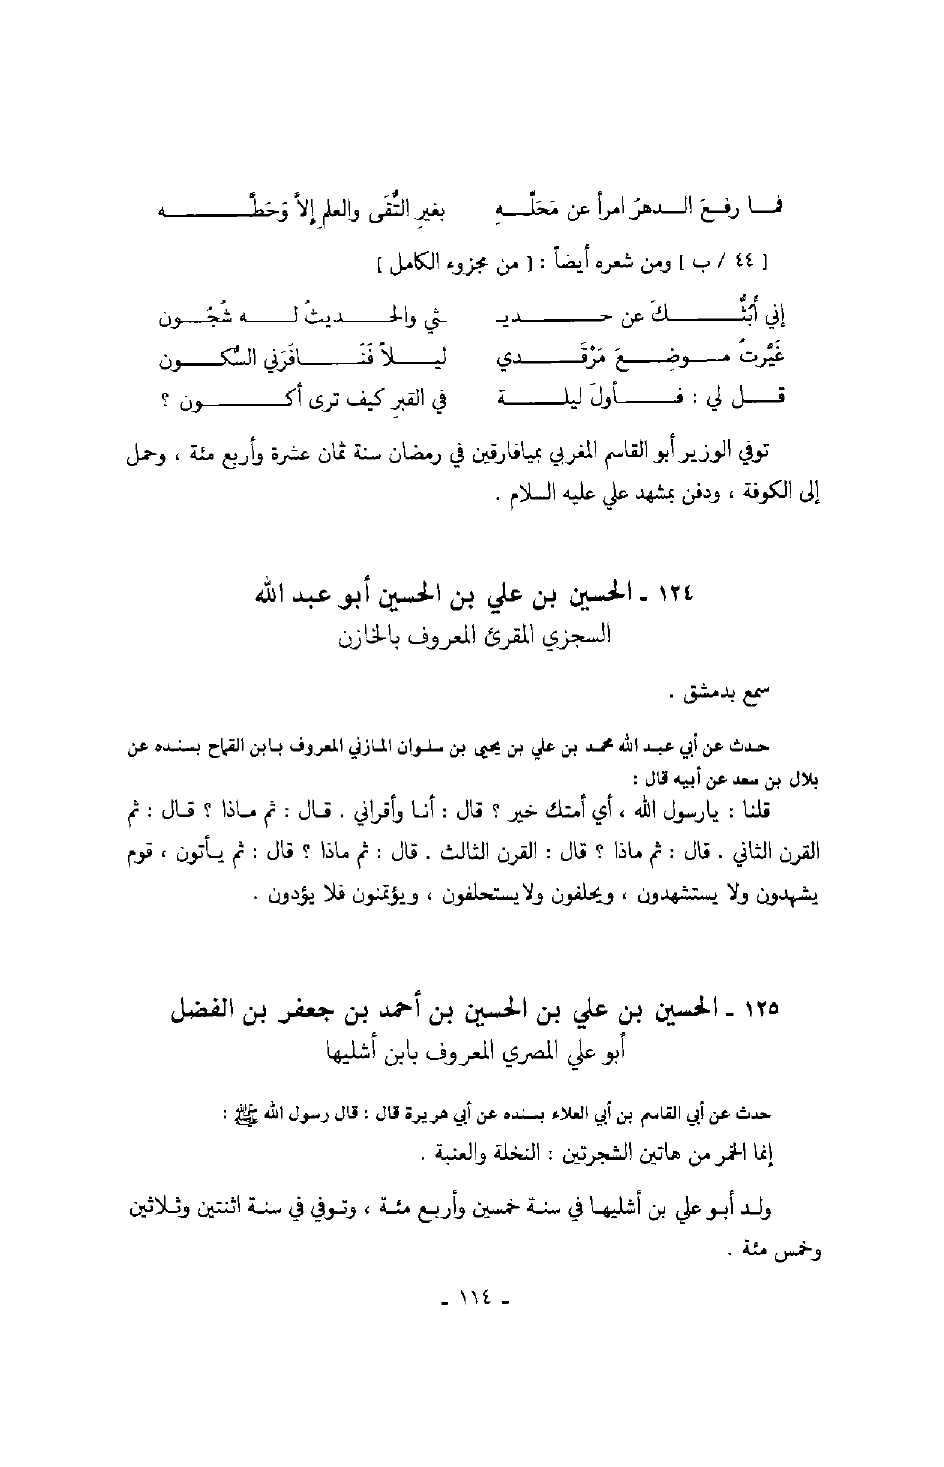 فما رفعَ الدهرُ امرأً عن مَحَلِّهِ بغيرِ التُّقَى والعلمِ إلاّ وَحَطَّه
[ ٤٤ / ب ] ومن شعره أيضاً : [ من مجزوء الكامل ]
إني أَبُثُّكَ عن حديـ ـثي والحديثُ له شُجُون
غَيَّرتُ موضعَ مَرْقَدي ليلاً فَنَافَرَني السُّكون
قل لي : فأولَ ليلة في القبرِ كيف ترى أكون ؟
توفي الوزير أبو القاسم المغربي بميافارقين في رمضان سنة ثمان عشرة وأربع مئة ، وحمل
إلى الكوفة ، ودفن بمشهد علي عليه السلام .
١٢٤ ـ الحسين بن علي بن الحسين أبو عبد الله
السجزي المقرئ المعروف بالخازن
سمع بدمشق .
حدث عن أبي عبد الله محمد بن علي بن يحيى بن سلوان المازني المعروف بابن القماح بسنده عن
بلال بن سعد عن أبيه قال :
قلنا : يارسول الله ، أي أمتك خير ؟ قال : أنا وأقراني . قال : ثم ماذا ؟ قال : ثم
القرن الثاني . قال : ثم ماذا ؟ قال : القرن الثالث . قال : ثم ماذا ؟ قال : ثم يأتون ، قوم
يشهدون ولا يستشهدون ، ويحلفون ولايستحلفون ، ويؤتمنون فلا يؤدون .
١٢٥ ـ الحسين بن علي بن الحسين بن أحمد بن جعفر بن الفضل
أبو علي المصري المعروف بابن أشليها
حدث عن أبي القاسم بن أبي العلاء بسنده عن أبي هريرة قال : قال رسول الله ﷺ :
إنما الخمر من هاتين الشجرتين : النخلة والعنبة .
ولد أبو علي بن أشليها في سنة خمسين وأربع مئة ، وتوفي في سنة اثنتين وثلاثين
وخمس مئة .
ـ ١١٤ ـ